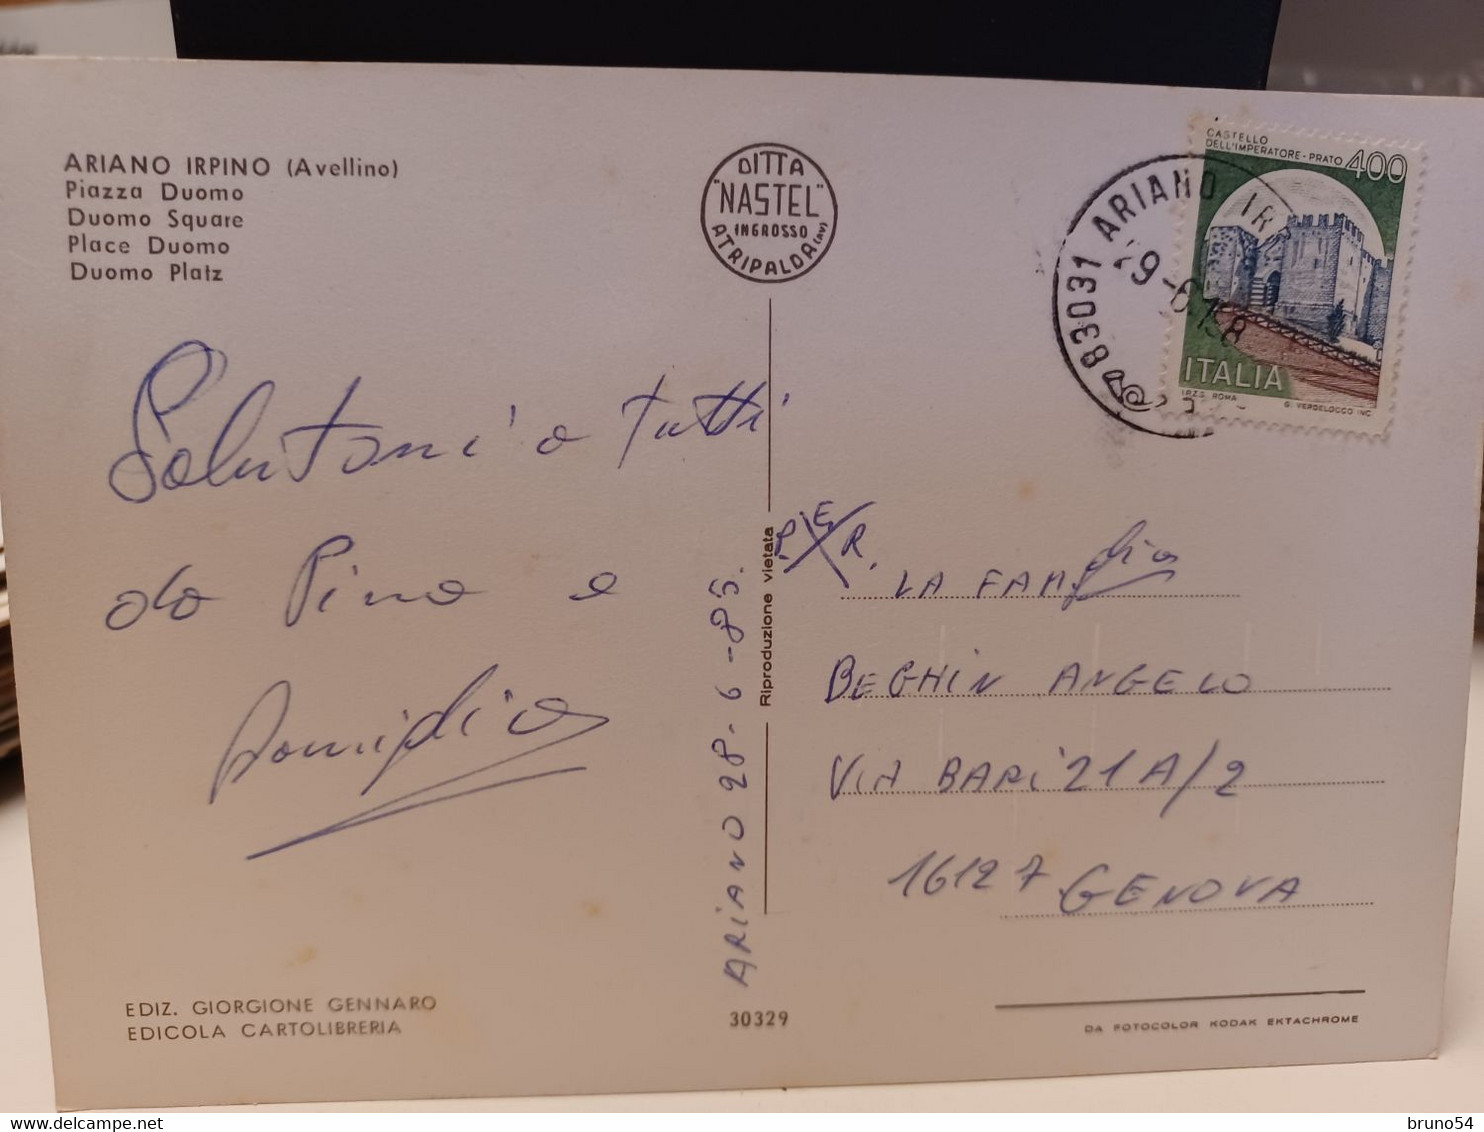 ARIANO IRPINO (Avellino)
Piazza Duomo
Duomo Square
Place Duomo
Duomo Platz
DITTA
"NASTEL"
INGROSSO
ATRIPALDA (AV)
CASTELLO
DELL'IMPERATORE - PRATO 400
ITALIA
I.P.Z.S. ROMA
G. VERDELOCCO INC.
83031 ARIANO IR
29-6
Salutoni a tutti
da Pino e
Romidia
ARIANO 28-6-85.
Riproduzione vietata
P.E.R.
LA FAMiglia
BEGHIN ANGELO
VIA BARI 21A/2
16127 GENOVA
EDIZ. GIORGIONE GENNARO
EDICOLA CARTOLIBRERIA
30329
DA FOTOCOLOR KODAK EKTACHROME
bruno54